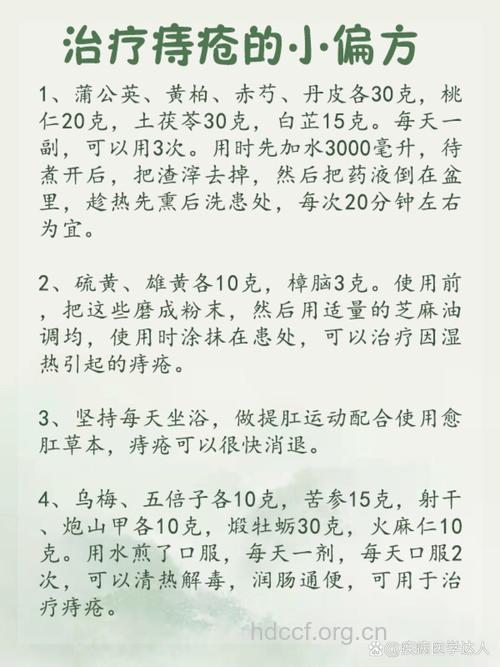 治疗痔疮的小偏方
1、蒲公英、黄柏、赤芍、丹皮各30克，桃
仁20克，土茯苓30克，白芷15克。每天一
副，可以用3次。用时先加水3000毫升，待
煮开后，把渣滓去掉，然后把药液倒在盆
里，趁热先熏后洗患处，每次20分钟左右
为宜。
2、硫黄、雄黄各10克，樟脑3克。使用前
，把这些磨成粉末，然后用适量的芝麻油
调均，使用时涂抹在患处，可以治疗因湿
热引起的痔疮。
3、坚持每天坐浴，做提肛运动配合使用愈
肛草本，痔疮可以很快消退。
4、乌梅、五倍子各10克，苦参15克，射干
、炮山甲各10克，煅牡蛎30克，火麻仁10
克。用水煎了口服，每天一剂，每天口服2
次，可以清热解毒，润肠通便，可用于治
疗痔疮。
hdccf.org.cn
疾病医学达人